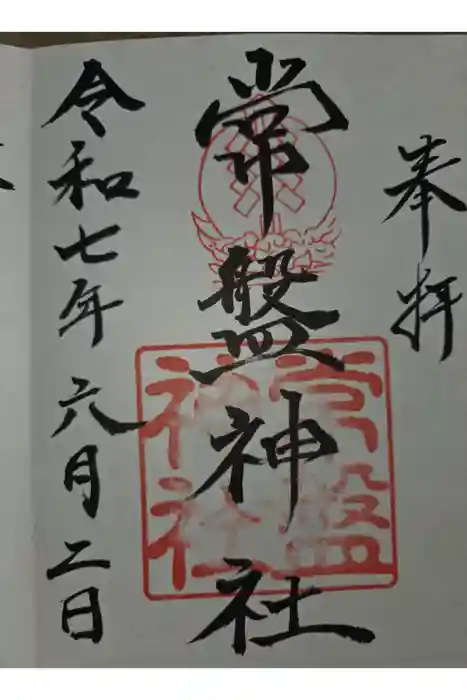 奉拝
常盤神社
常盤
神社
令和七年六月二日